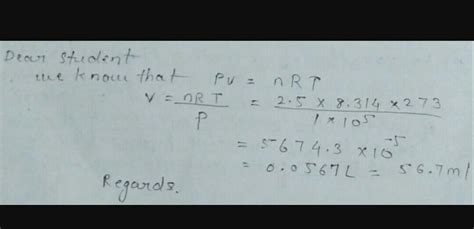 Dear student
we know that PV = nRT
V = nRT/P = 2.5 x 8.314 x 273 / 1 x 10⁵
= 5674.3 x 10⁻⁵
= 0.0567L = 56.7ml
Regards.